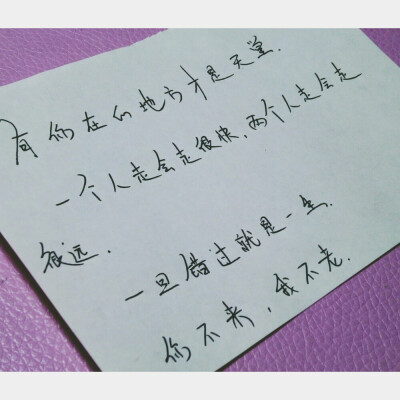 有你在的地方才是天堂.
一个人走会走很快,两个人走会走
很远.
一旦错过就是一生.
你不来,我不老.